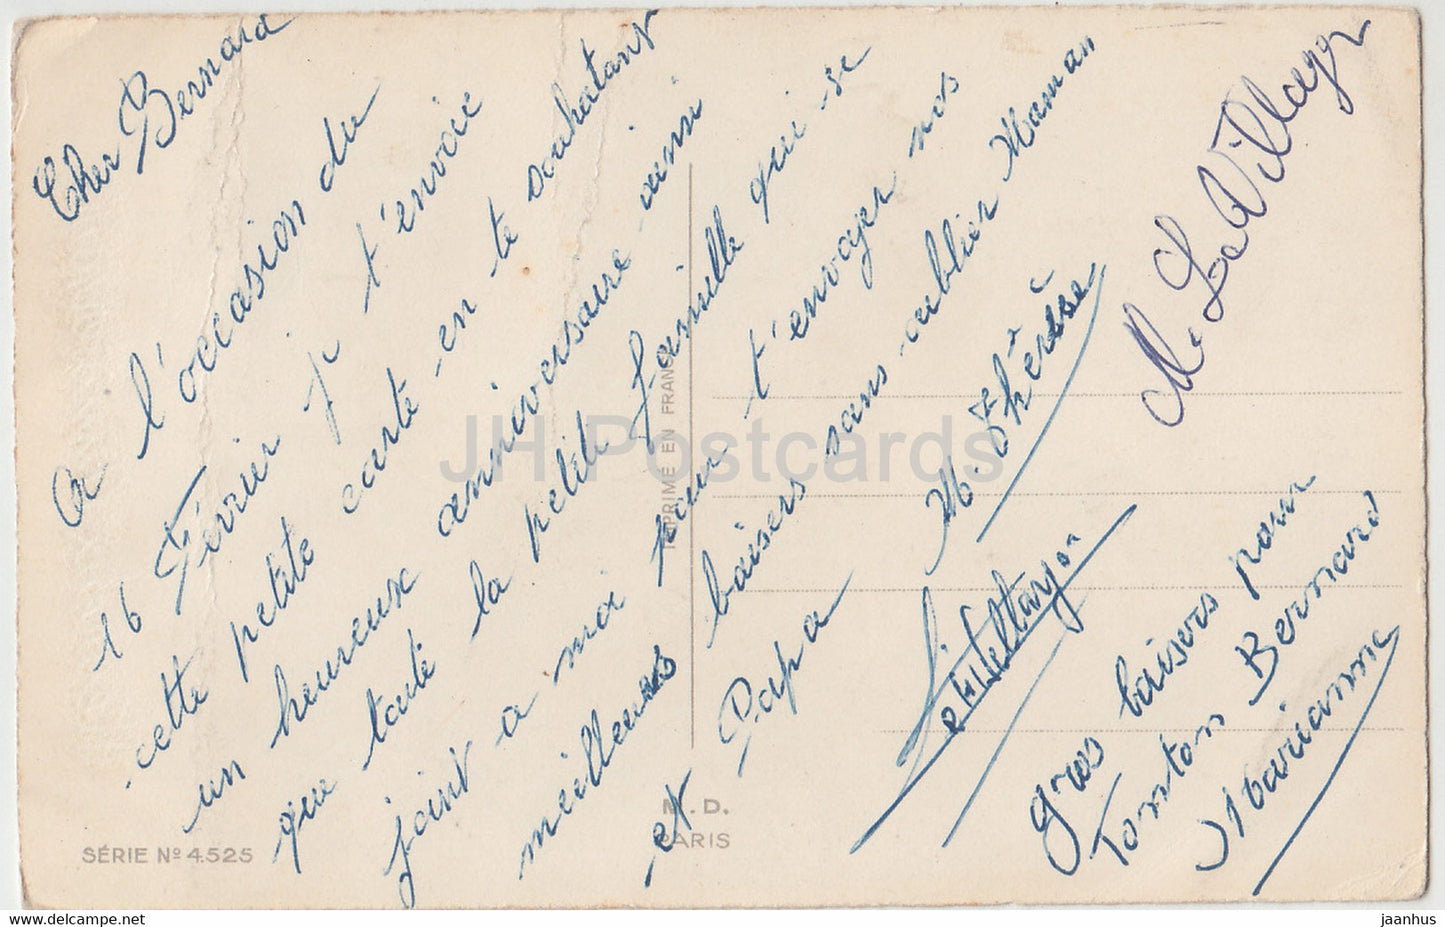 Cher Bernard
A l'occasion du
16 Février je t'envoie
cette petite carte en te souhaitant
un heureux anniversaire ainsi
que toute la petite famille qui se
joint a moi pour t'envoyer nos
meilleurs baisers sans oublier Maman
et Papa M. Thérèse
gros baisers pour
Tonton Bernard
Marianne
SÉRIE Nº 4.525
IMPRIMÉ EN FRANCE
M.D.
PARIS
JH Postcards
https://www.delcampe.net
jaanhus